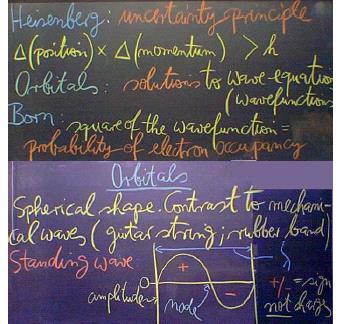 Heisenberg: uncertainty principle
Δ(position) x Δ(momentum) > h
Orbitals: solutions to wave-equation
(wavefunction
Born: square of the wavefunction =
probability of electron occupancy
Orbitals
Spherical shape. Contrast to mechani-
cal waves (guitar string; rubber band)
Standing wave
+
+/- = sign
0
amplitude
node
-
not charge